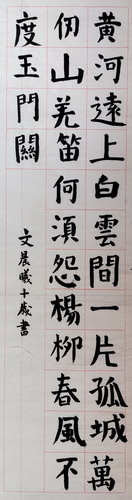 黄河遠上白雲間一片孤城萬
仞山羌笛何須怨楊柳春風不
度玉門關
文晨曦十歲書